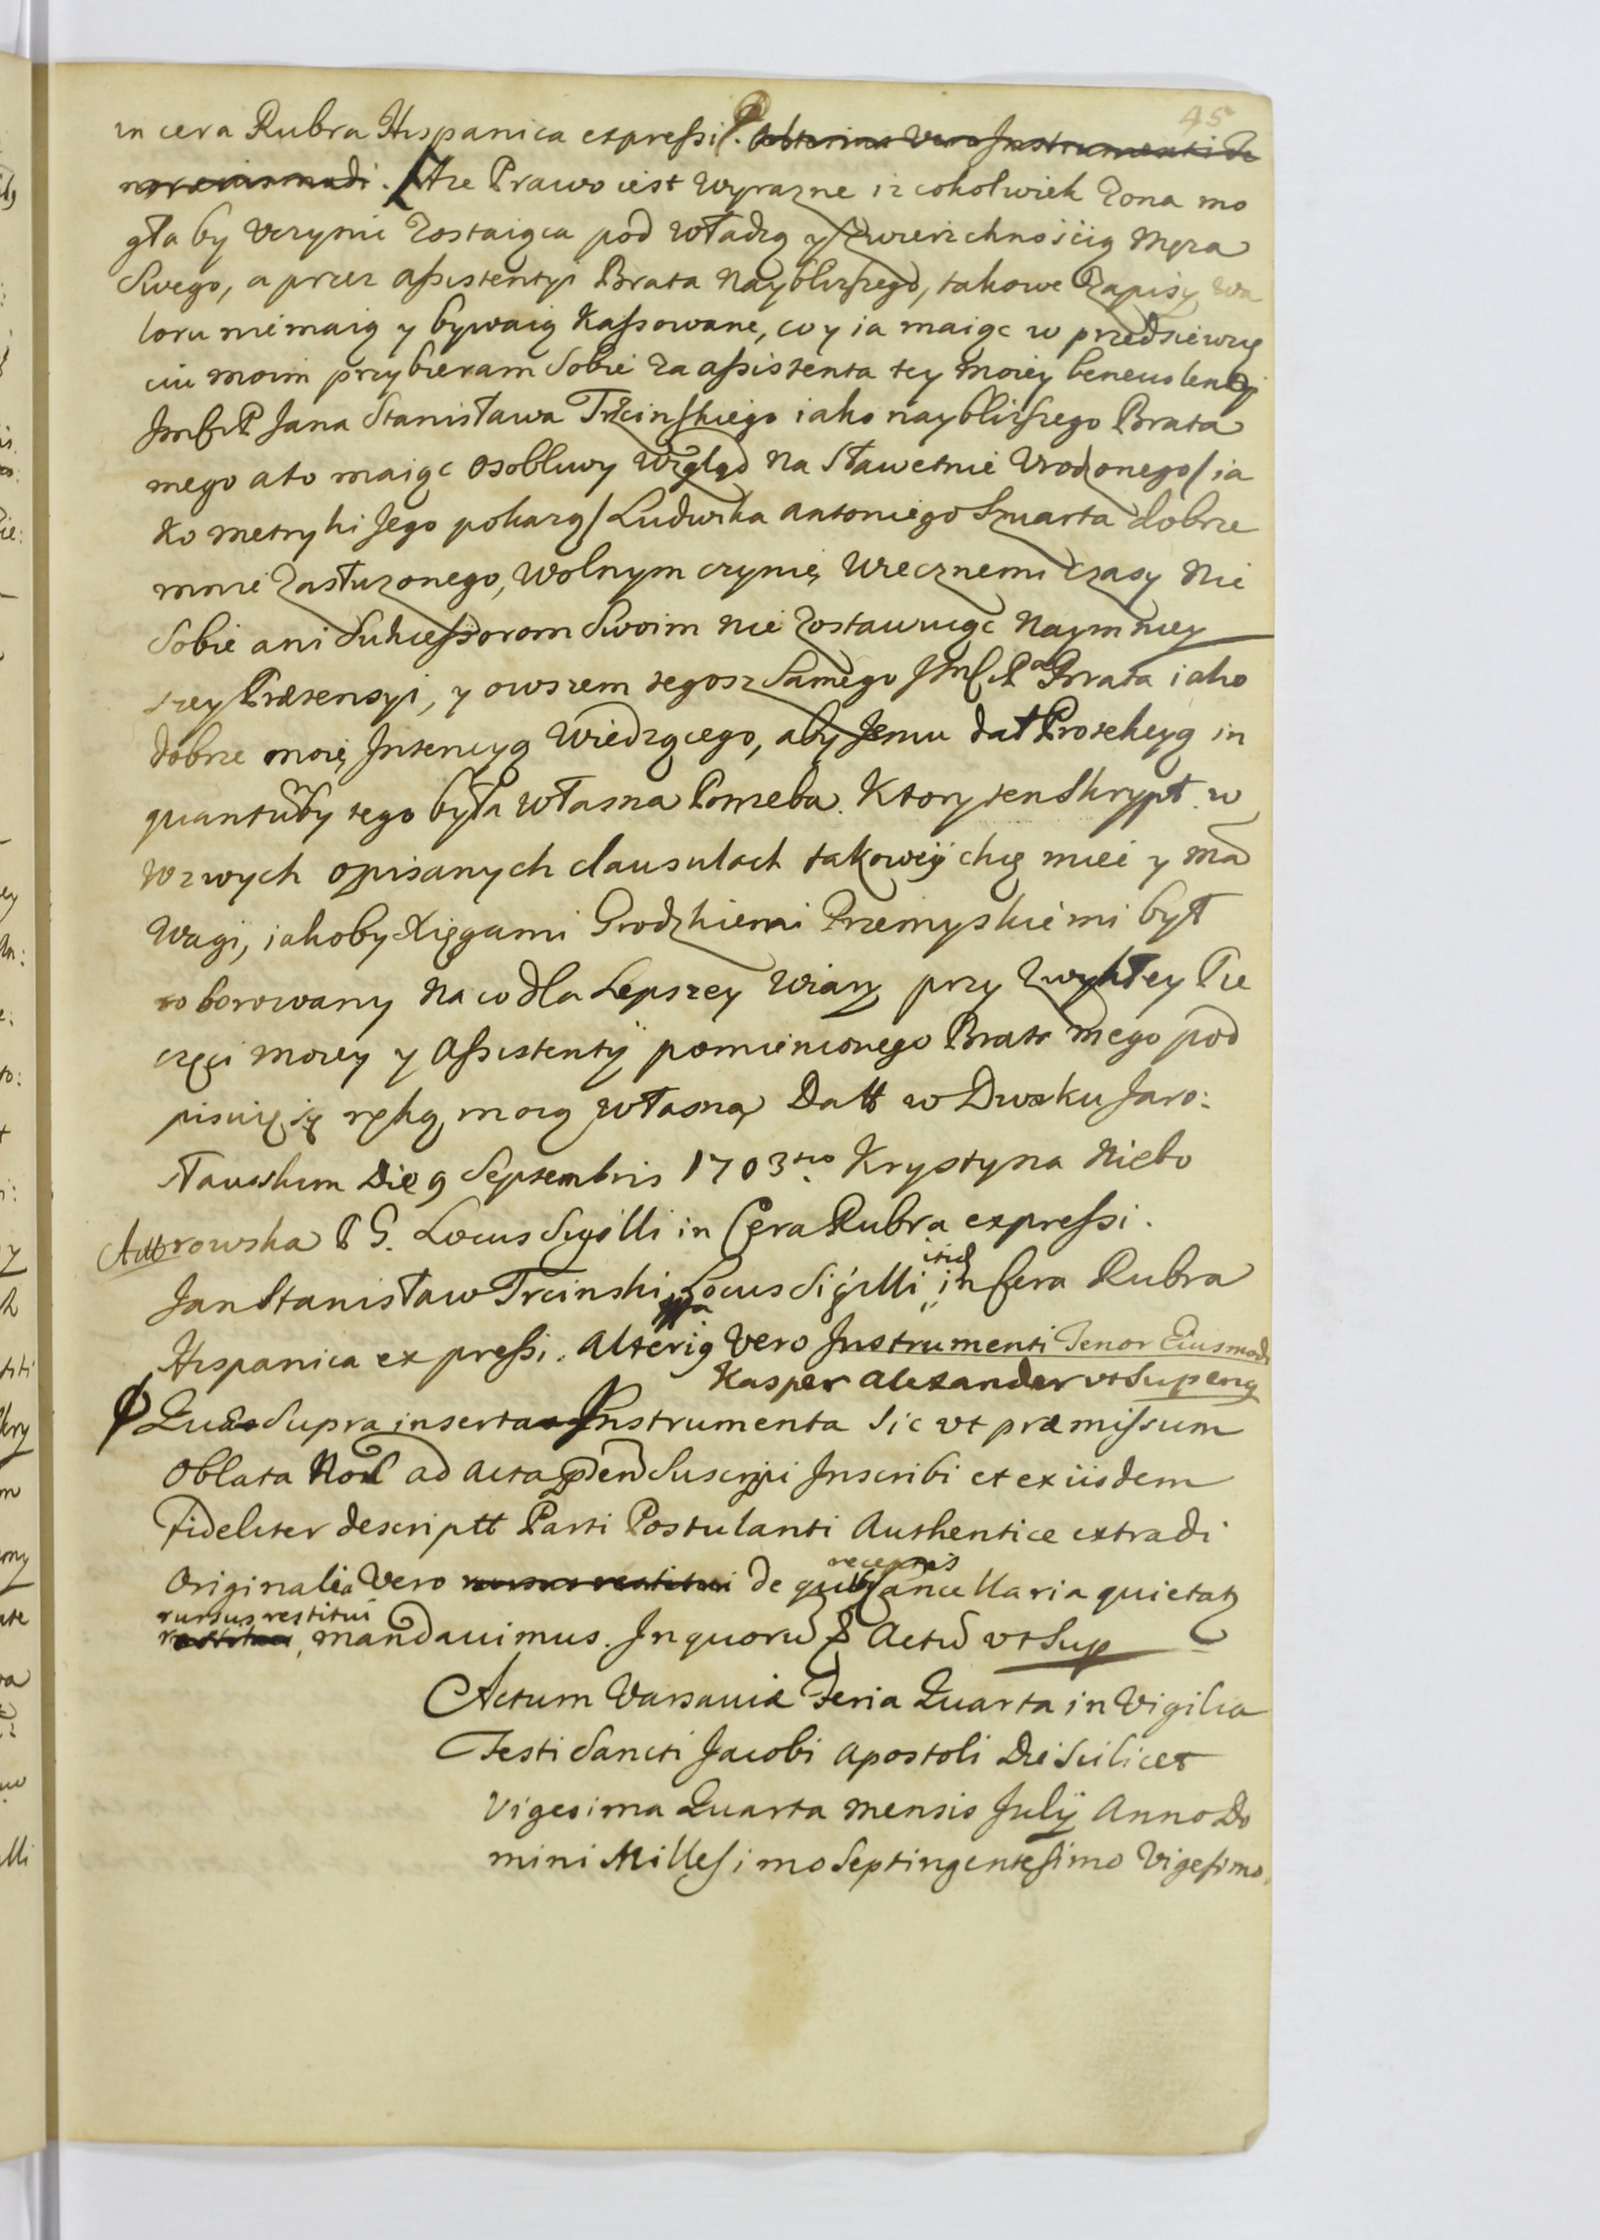 45
in cera Rubra Hispanica expressi. Alterius vero Instrumenti Te
nor eiusmodi. Aże Prawo iest wyrazne iz cokolwiek Zona mo
gła by vczynic zostaiąca pod władzą y zwierzchnością Męza
Swego, a przez assistentyi Brata Nayblizszego, takowe Zapisy wa
loru niemaią y bywaią kassowane, co y ia maiąc w przedsiewzię
ciu moim przybieram Sobie za assistenta tey moiey beneuolencyi
Jmść P Jana Stanisława Trzcinskiego iako nayblizszego Brata
mego a to maiąc osobliwy wzgląd na Sławetnie Vrodzonego/ia
ko metryki Jego pokazą/Ludwika Antoniego Szuarta dobrze
mnie Zasłuzonego, wolnym czynię wiecznemi czasy nie
Sobie ani Sukcessorom Swoim nie Zostawuiąc Naymniey
szey Prætensyi, y owszem tegosz Samego Jmść Pa Brata iako
dobrze moię Intencyą wiedzącego, aby Jemu dał Protekcyą in
quantuby tego była własna Potrzeba. Ktory ten Skrypt w
wzwych opisanych clausulach takoweÿ chcę miec y ma
wagi, iakoby Xięgami Grodzkiemi Przemyskiemi był
roborowany na co dla Lepszey wiary przy zwykłey Pie
częci moiey y Assistentÿ pomienionego Brata mego pod
pisuię się ręką moią własną Datt w Dworku Jaro:
sławskim Die 9 Septembris 1703tio Krystyna Niebo
rowska P G. Locus Sigilli in Cera Rubra expressi.
Jan Stanisław Trcinski Locus Sigilli itid in Cera Rubra
Hispanica expressi. Alterig Vero Instrumenti Tenor Eiusmodi
Kasper Alexander vt Sup eng
Quæ Supra inserta Instrumenta Sic vt præmissum
Oblata Nos ad Acta pñ Suscipi Inscribi et ex iisdem
Fideliter descriptt Parti Postulanti Authentice extradi
receptis
Originalia Vero rursus restitui de quibg Cancellaria quietatg
rursus restitui
restitui, mandauimus. In quoru & Actu vt Sup
Actum Varsauiæ Feria Quarta in Vigilia
Festi Sancti Jacobi Apostoli Die Scilicet
Vigesima Quarta mensis Julÿ Anno Do
mini Millesimo Septingentesimo Vigesimo.